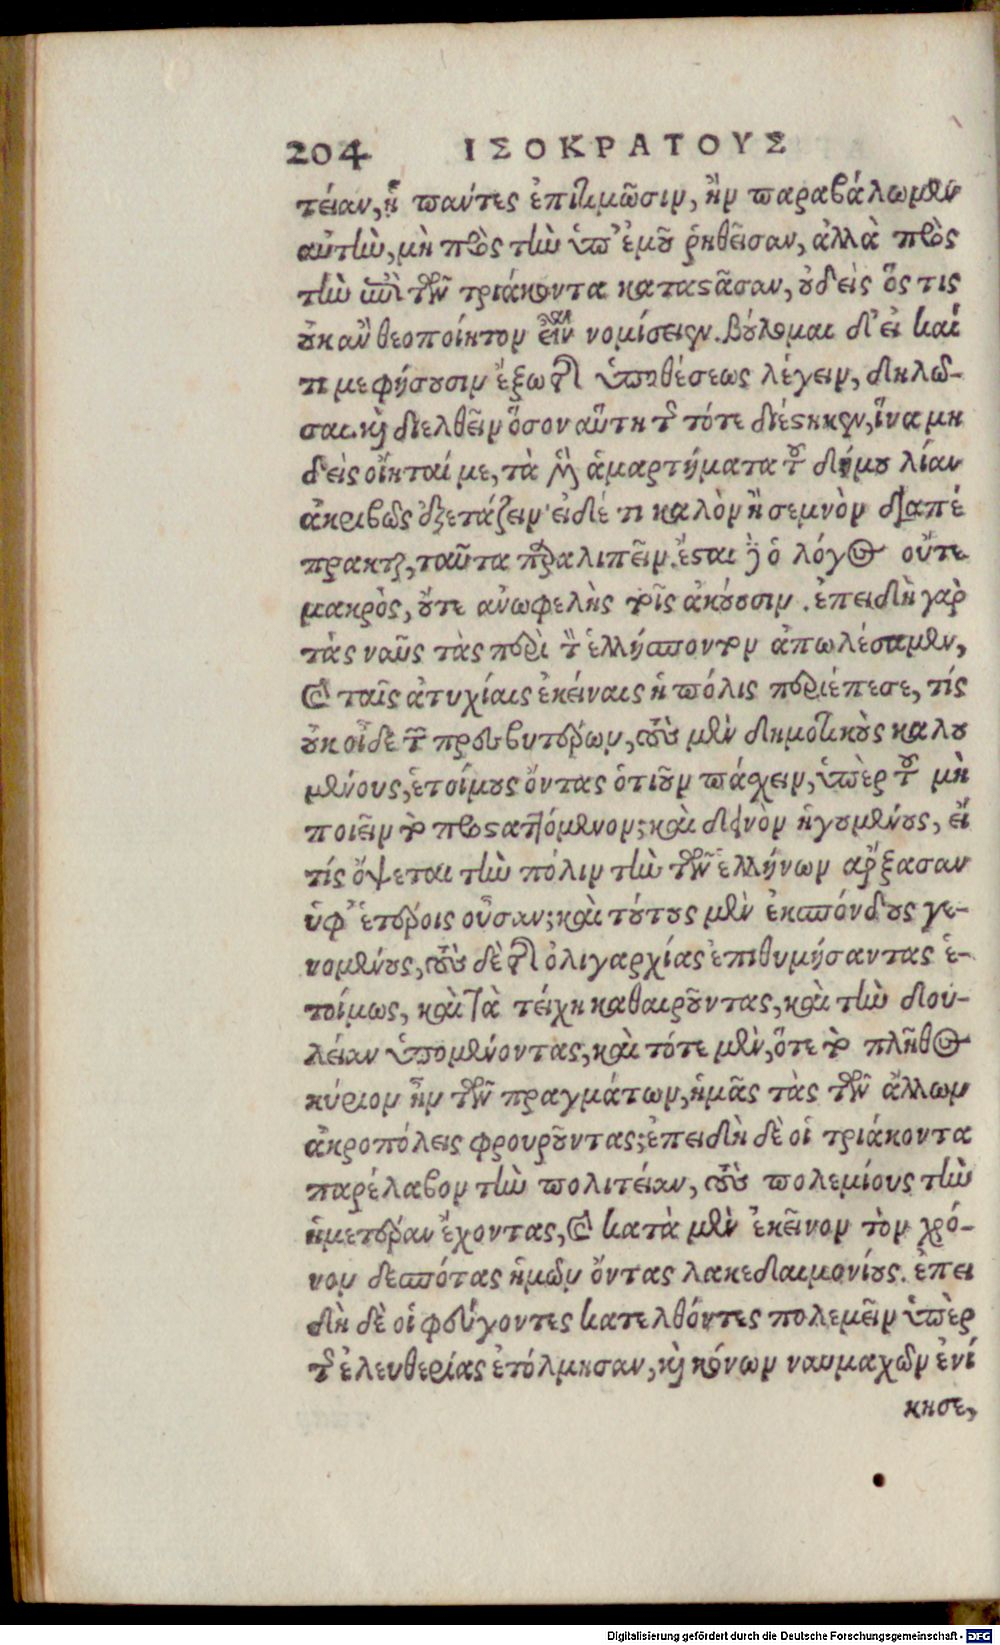 204 ΙΣΟΚΡΑΤΟΥΣ
τείαν, ᾗ πάντες ἐπιτιμῶσιν, ἢν παραβάλωμεν
αὐτὴν, μὴ πρὸς τὴν ὑπ' ἐμοῦ ῥηθεῖσαν, ἀλλὰ πρὸς
τὴν ὑπὸ τῶν τριάκοντα καταστᾶσαν, οὐδεὶς ὅς τις
οὐκ ἂν θεοποίητον εἶναι νομίσειεν. βούλομαι δ' εἰ καί
τι με φήσουσιν ἔξω τῆς ὑποθέσεως λέγειν, δηλῶ-
σαι καὶ διελθεῖν ὅσον αὕτη τῆς τότε διέστηκεν, ἵνα μη
δεὶς οἴηταί με, τὰ μὲν ἁμαρτήματα τοῦ δήμου λίαν
ἀκριβῶς ἐξετάζειν· εἰ δέ τι καλὸν ἢ σεμνὸν διαπέ
πρακται, ταῦτα παραλιπεῖν. ἔσται δὲ ὁ λόγος οὔτε
μακρὸς, οὔτε ἀνωφελὴς τοῖς ἀκούουσιν. ἐπειδὴ γὰρ
τὰς ναῦς τὰς περὶ τὸν ἑλλήσποντον ἀπωλέσαμεν,
καὶ ταῖς ἀτυχίαις ἐκείναις ἡ πόλις περιέπεσε, τίς
οὐκ οἶδε τῶν πρεσβυτέρων, τοὺς μὲν δημοτικοὺς καλου
μένους, ἑτοίμους ὄντας ὁτιοῦν πάσχειν, ὑπὲρ τοῦ μὴ
ποιεῖν τὸ προσταττόμενον; καὶ δεινὸν ἡγουμένους, εἴ
τίς ὄψεται τὴν πόλιν τὴν τῶν ἑλλήνων ἄρξασαν
ὑφ' ἑτέροις οὖσαν; καὶ τούτους μὲν ἐκσπόνδους γε-
νομένους, τοὺς δὲ τῆς ὀλιγαρχίας ἐπιθυμήσαντας ἑ-
τοίμως, καὶ τὰ τείχη καθαιροῦντας, καὶ τὴν δου-
λείαν ὑπομένοντας, καὶ τότε μὲν, ὅτε τὸ πλῆθος
κύριον ἦν τῶν πραγμάτων, ἡμᾶς τὰς τῶν ἄλλων
ἀκροπόλεις φρουροῦντας; ἐπειδὴ δὲ οἱ τριάκοντα
παρέλαβον τὴν πολιτείαν, τοὺς πολεμίους τὴν
ἡμετέραν ἔχοντας, καὶ κατὰ μὲν ἐκεῖνον τὸν χρό-
νον δεσπότας ἡμῶν ὄντας λακεδαιμονίους. ἐπει
δὴ δὲ οἱ φεύγοντες κατελθόντες πολεμεῖν ὑπὲρ
τῆς ἐλευθερίας ἐτόλμησαν, καὶ κόνων ναυμαχῶν ἐνί
κησε,
Digitalisierung gefördert durch die Deutsche Forschungsgemeinschaft - DFG